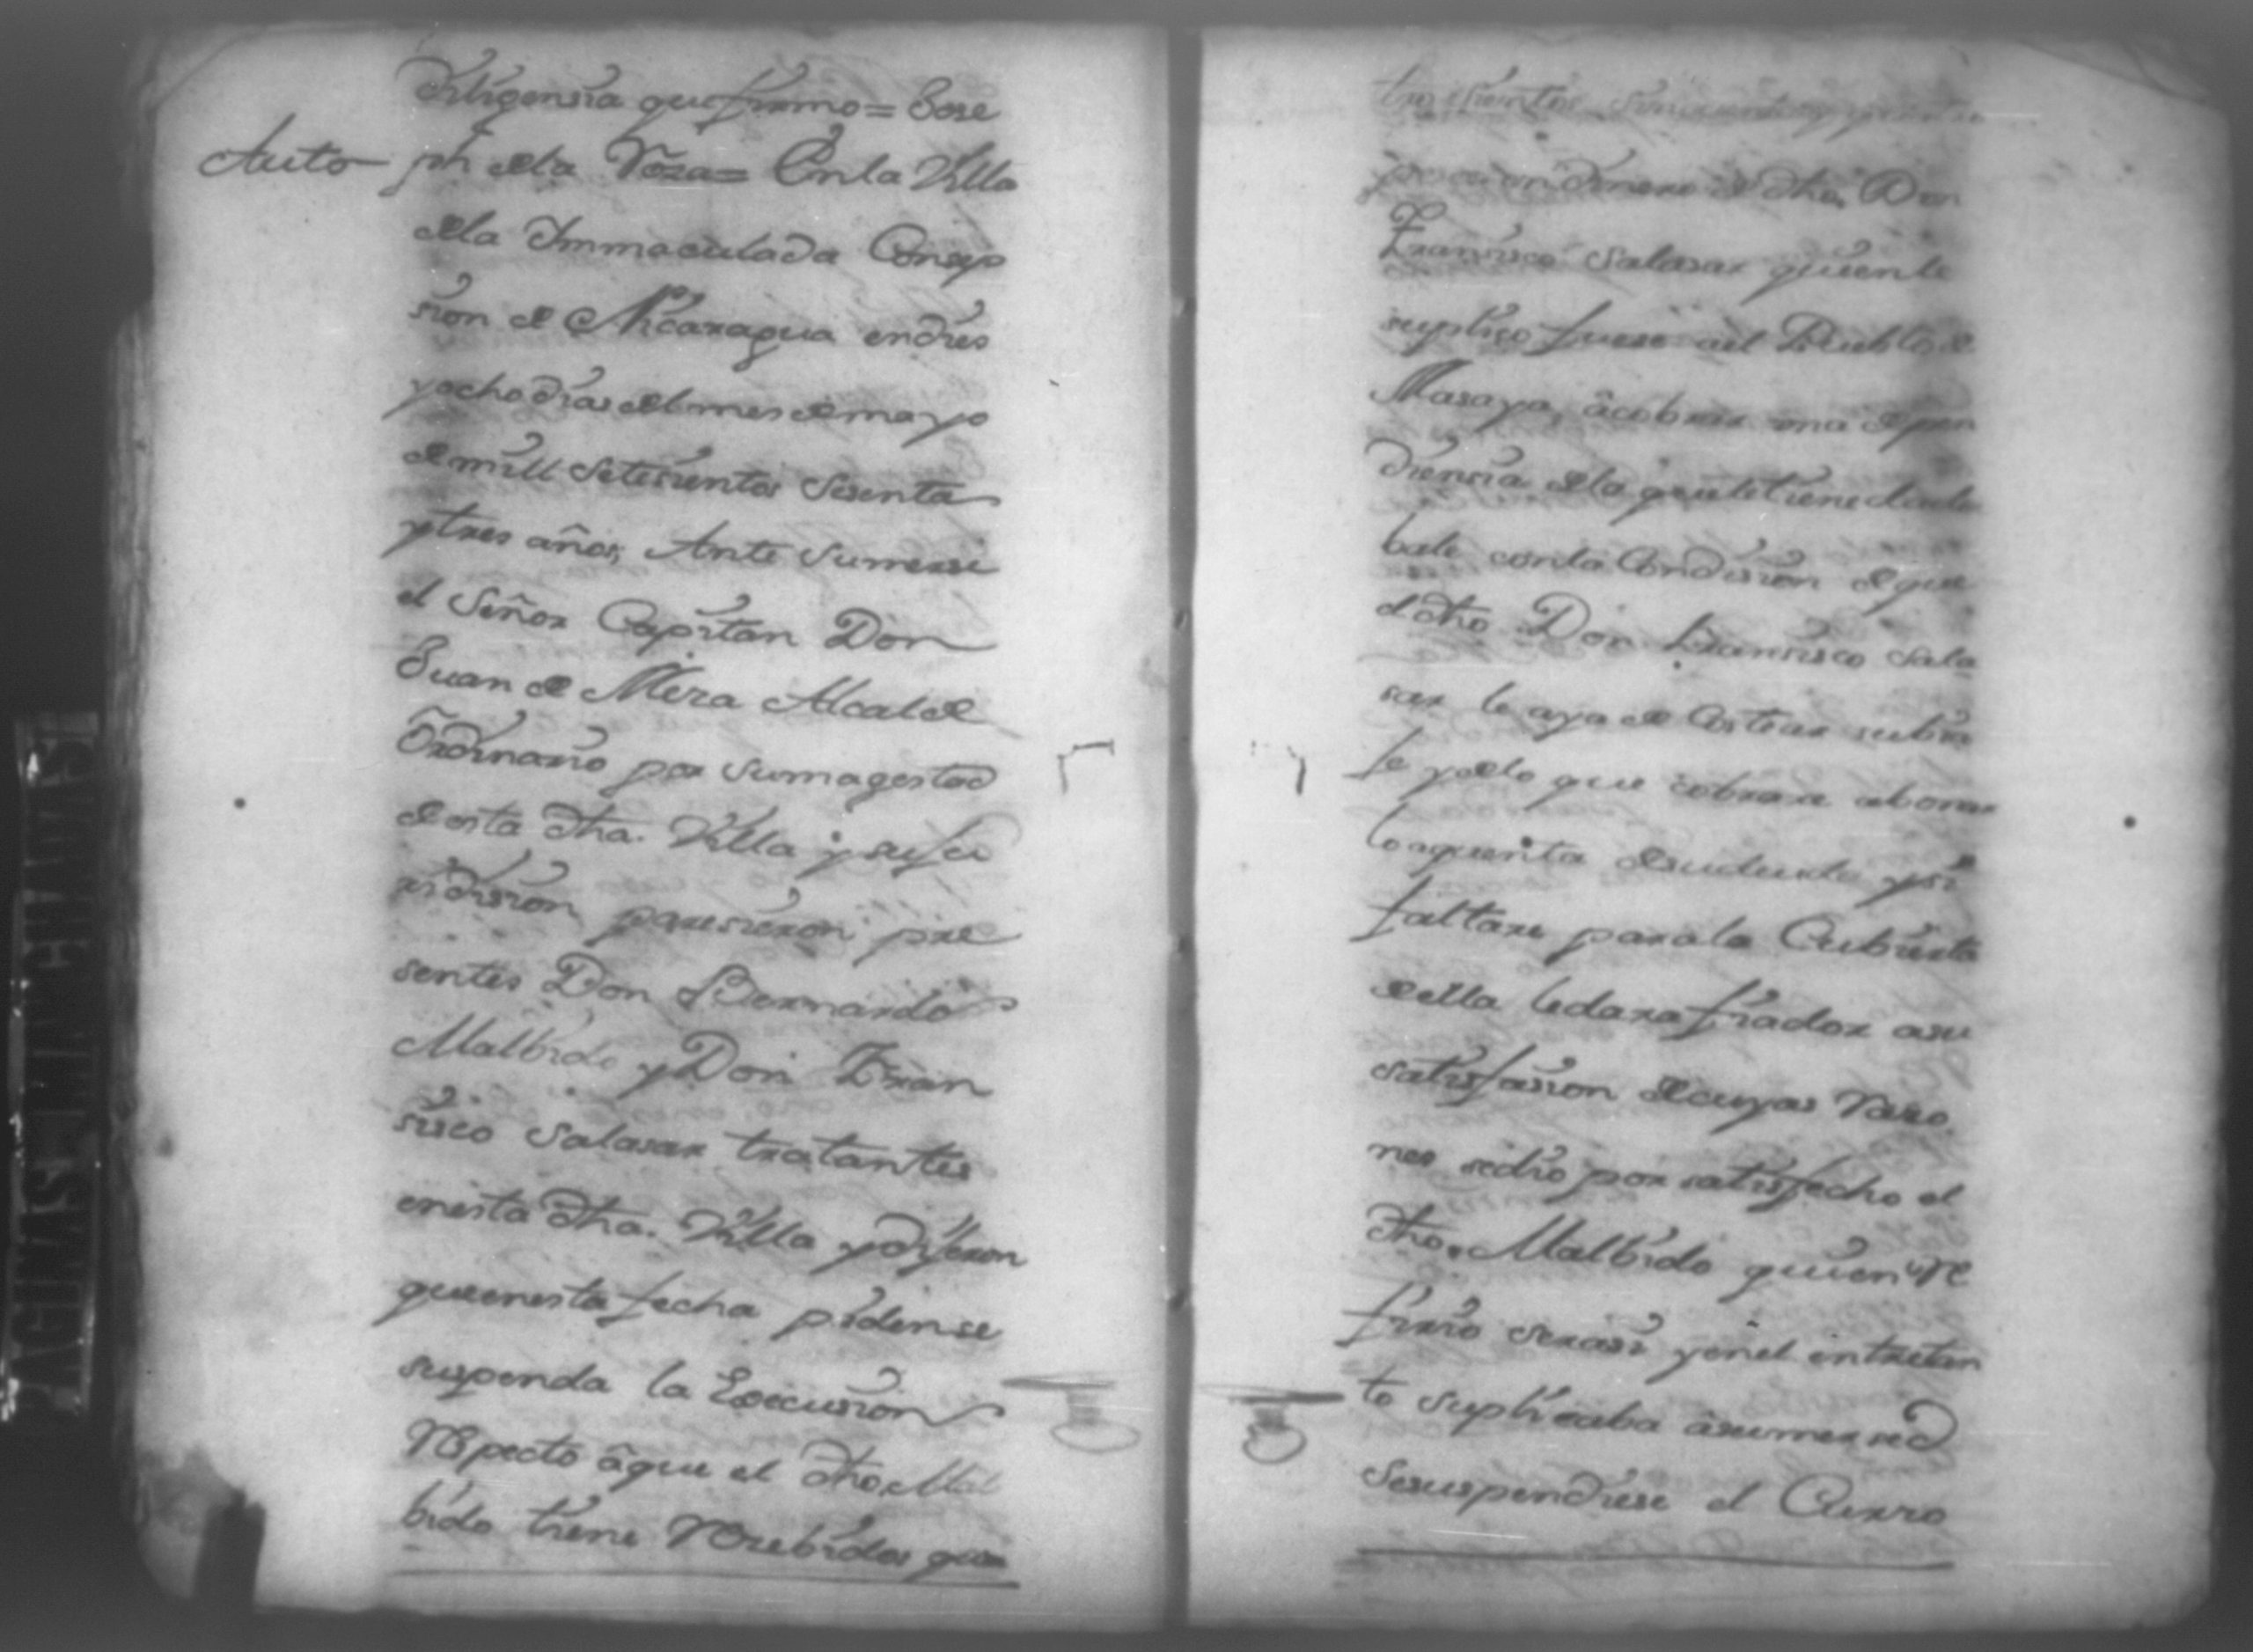 diligensia que firmo = Jose
Auto ph de la Roza = En la Villa
de la Immaculada Consep
sion de Nicaragua en dies
y ocho dias del mes de mayo
de mill setesientos sesenta
y tres años, Ante Su merse
el Señor Capitan Don
Juan de Mera Alcalde
Ordinario por su magestad
de esta dha. Villa y su Ju
ridision paresieron pre
sentes Don Bernardo
Malbido y Don Fran
sisco Salasar tratantes
en esta dha. Villa y dixeron
que en esta fecha piden se
suspenda la Execusion
Respecto â que el dho. Mal
bido tiene Resebidos
tresientos sinquenta y
dinero de dho. Don
Francisco Salasar quien le
suplico fuese al Pueblo de
Masaya, â cobrar una depen
diensia de la que le tiene
bale con la Condision de que
el dho Don Fransisco Sala
sar le aya de Costear
y de lo que cobrare abonar
lo a quenta de su deuda, y si
faltare para la Cubierta
de ella le dara fiador a su
satisfasion de cuyas Raso
nes se dio por satisfecho el
dho. Malbido quien Re
firio ser asi y en el entretan
to suplicaba â su mersed
se suspendiese el Curso